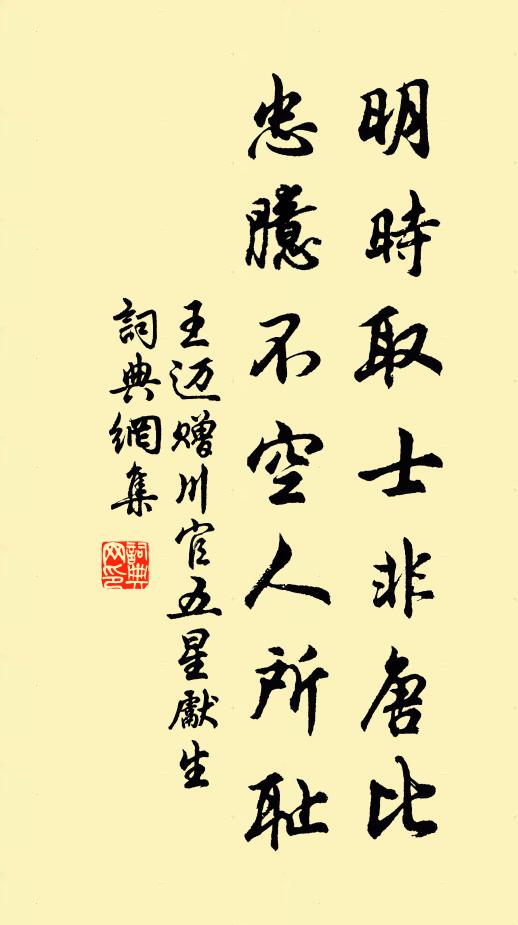 明時取士非唐比
忠臆不空人所耻
王迈赠川官五星獻生
詞典網集
詞典
网印